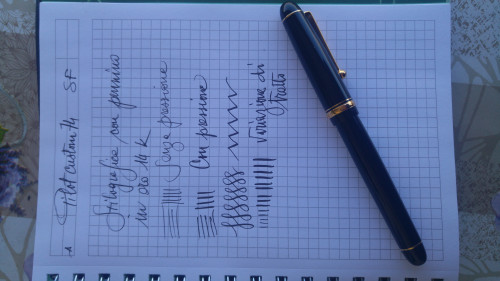 1 Pilot custom 74 SF
Stilografica con pennino
in oro 14 K
Senza pressione
Con pressione
Variazione di
tratto